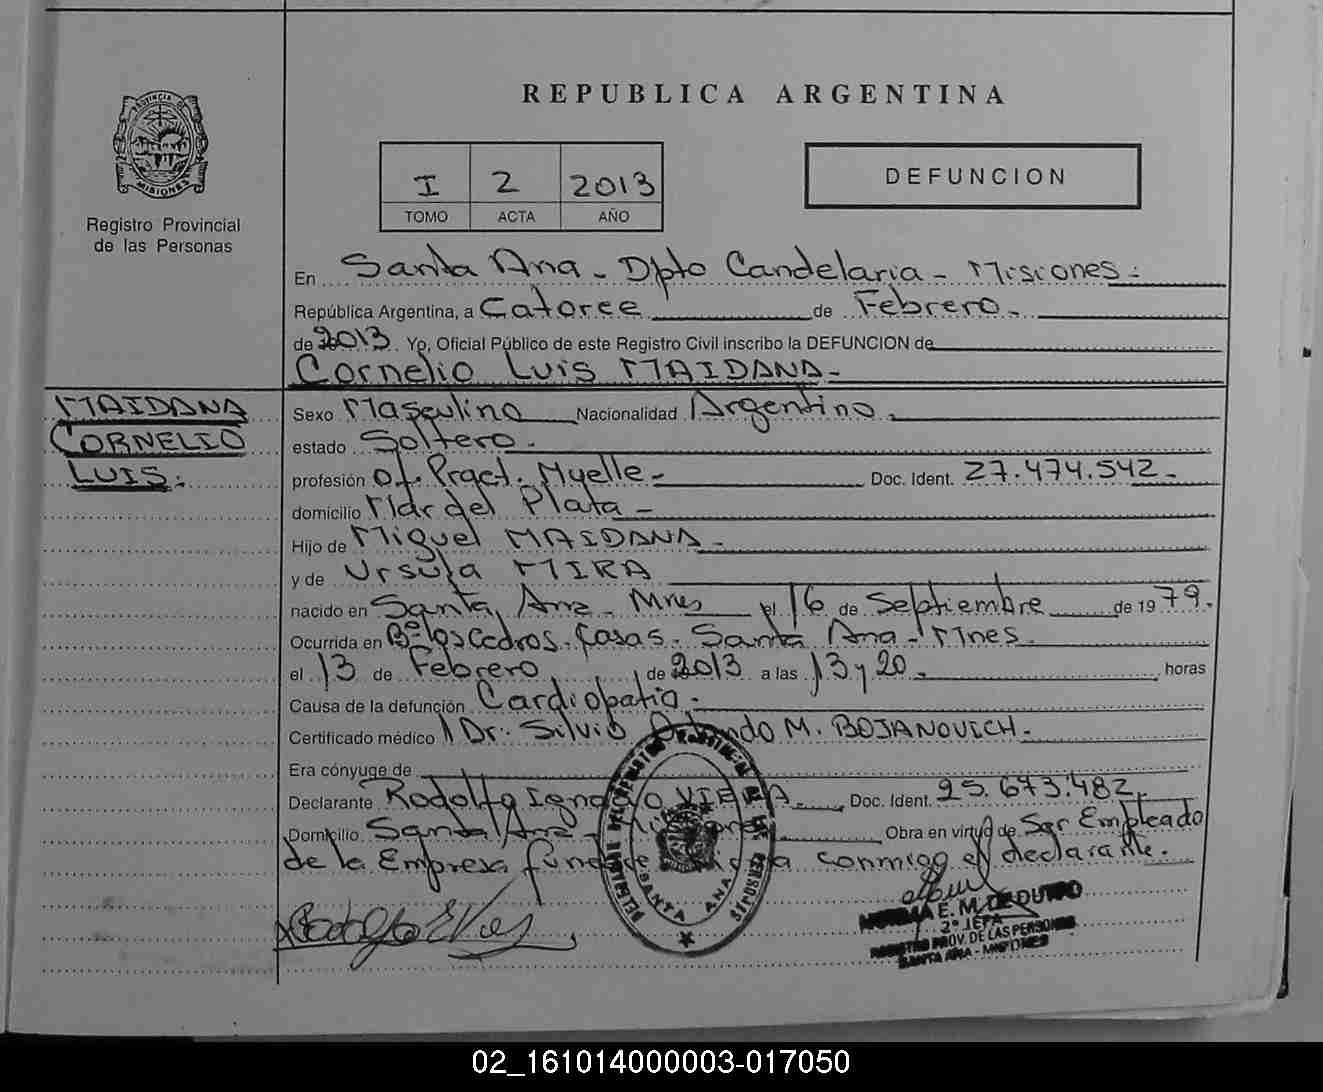 REPUBLICA ARGENTINA
PROVINCIA DE
MISIONES
Registro Provincial
de las Personas
I 2 2013
TOMO ACTA AÑO
DEFUNCION
En Santa Ana - Dpto Candelaria - Misiones.
República Argentina, a Catorce de Febrero.
de 2013 Yo, Oficial Público de este Registro Civil inscribo la DEFUNCION de
Cornelio Luis MAIDANA-
MAIDANA
CORNELIO
LUIS.
Sexo Masculino Nacionalidad Argentino.
estado Soltero.
profesión Doc. Ident. 27.474.542.-
domicilio Mar del Plata -
Hijo de Miguel MAIDANA -
y de Ursula MIRA
nacido en Santa Ana - Mnes el 16 de Septiembre de 1979.
Ocurrida en Bº los Cedros. Casas. Santa Ana - Mnes.
el 13 de Febrero de 2013 a las 13 y 20. horas
Causa de la defunción Cardiopatia.
Certificado médico Dr. Silvio Orlando M. BOJANOVICH.
Era cónyuge de
Declarante Rodolfo Ignacio VIERA. Doc. Ident. 25.673.482.
Domicilio Santa Ana - Obra en virtud de Ser Empleado
de la Empresa conmigo el declarante.
SANTA ANA
E. M. DE DUTRO
2° JEFA
REGISTRO PROV. DE LAS PERSONAS
SANTA ANA - MISIONES
02_161014000003-017050